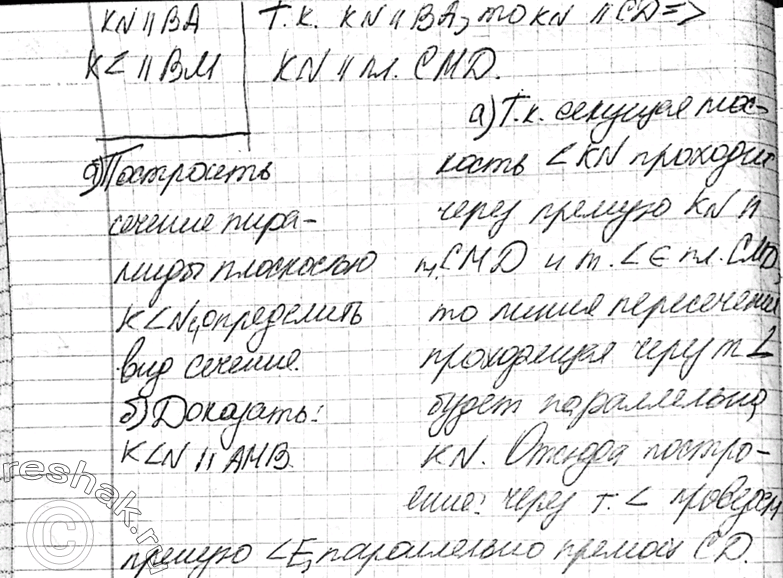 KN || BA
K∠ || BM
Т.к. KN || BA, то KN || CD =>
KN || пл. CMD.
а) Построить
сечение пира-
миды плоскостью
K∠N, определить
вид сечение.
б) Доказать:
K∠N || AMB.
а) Т.к. секущая плос-
кость ∠KN проходит
через прямую KN ||
п. CMD и т. ∠ ∈ пл. CMD
то линия пересечения
проходящая через т ∠
будет параллельна
KN. Отсюда постро-
ение: через т. ∠ проведем
прямую ∠E, параллельно прямой CD.
reshak.ru